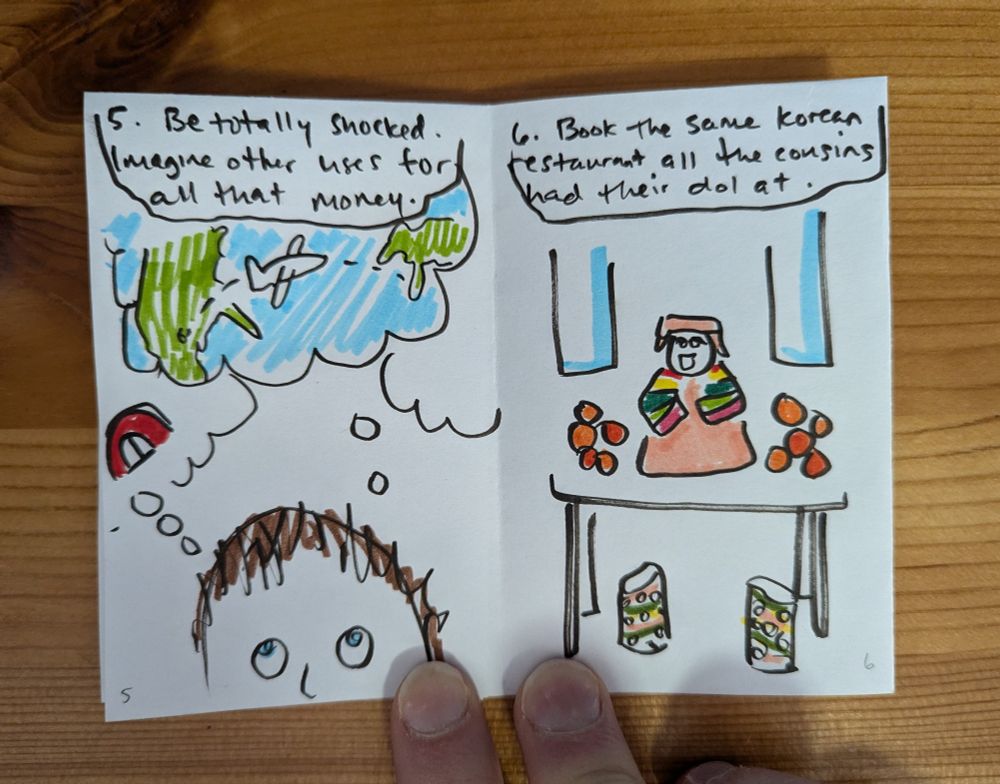 5. Be totally shocked.
Imagine other uses for
all that money.
6. Book the same Korean
restaurant all the cousins
had their dol at.
5
6